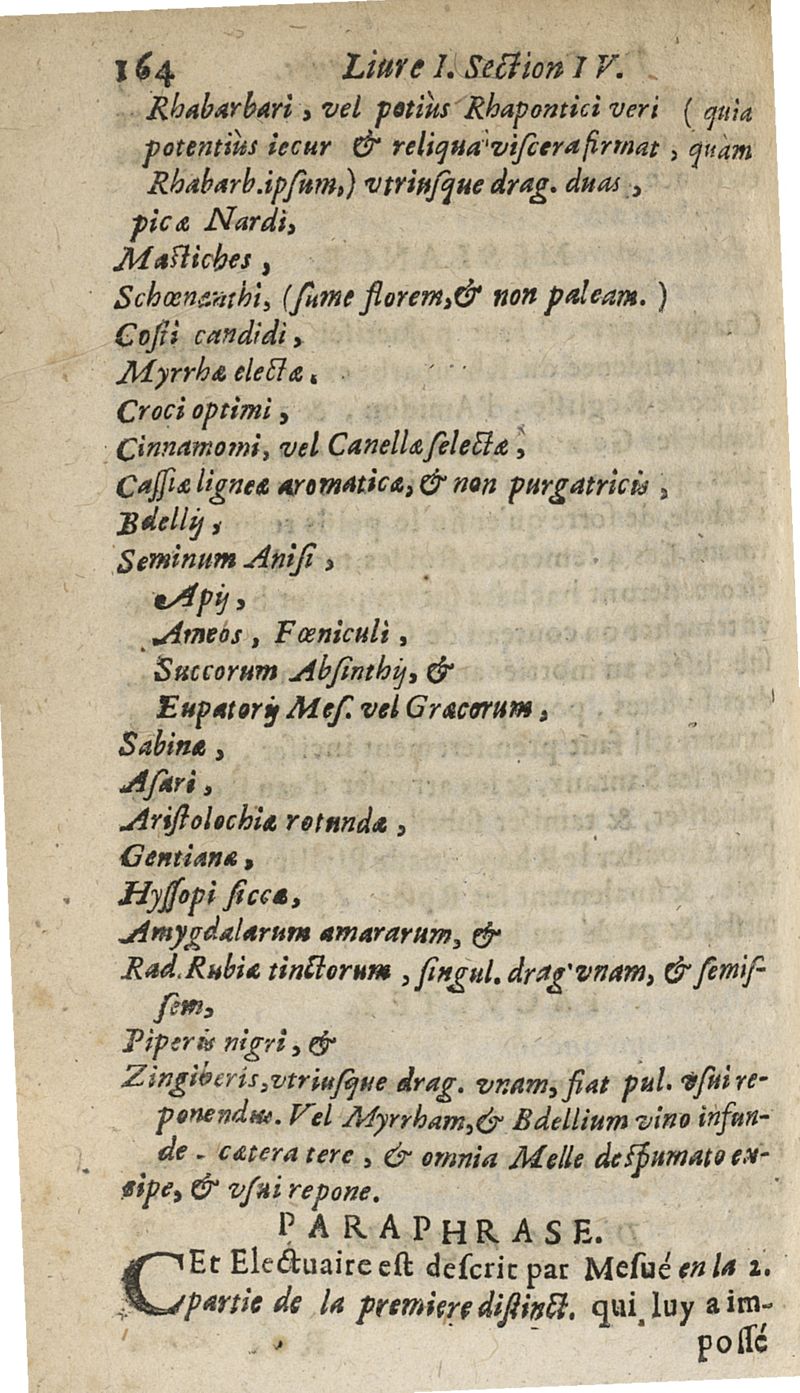 164 Liure I. Section IV.
Rhabarbari, vel potiùs Rhapontici veri (quia
potentiùs iecur & reliqua viſcera firmat, quàm
Rhabarb.ipſum,) vtriuſque drag. duas,
picæ Nardi,
Maſtiches,
Schœnanthi, (ſume florem,& non paleam.)
Coſti candidi,
Myrrhæ electæ.
Croci optimi,
Cinnamomi, vel Canellæ ſelectæ,
Caſſiæ ligneæ aromaticæ, & non purgatricis,
Bdellij,
Seminum Aniſi,
Apij,
Ameos, Fœniculi,
Succorum Abſinthij, &
Eupatorij Meſ. vel Græcorum,
Sabinæ,
Aſari,
Ariſtolochiæ rotundæ,
Gentianæ,
Hyſſopi ſiccæ,
Amygdalarum amararum, &
Rad. Rubiæ tinctorum, ſingul. drag vnam, & ſemiſ-
ſem,
Piperis nigri, &
Zingiberis, vtriuſque drag. vnam, fiat pul. vſui re-
ponendus. Vel Myrrham,& Bdellium vino infun-
de. cætera tere, & omnia Melle deſpumato ex-
cipe, & vſui repone.
PARAPHRASE.
CEt Electuaire eſt deſcrit par Meſué en la 2.
partie de la premiere diſtinct. qui luy a im-
poſſé